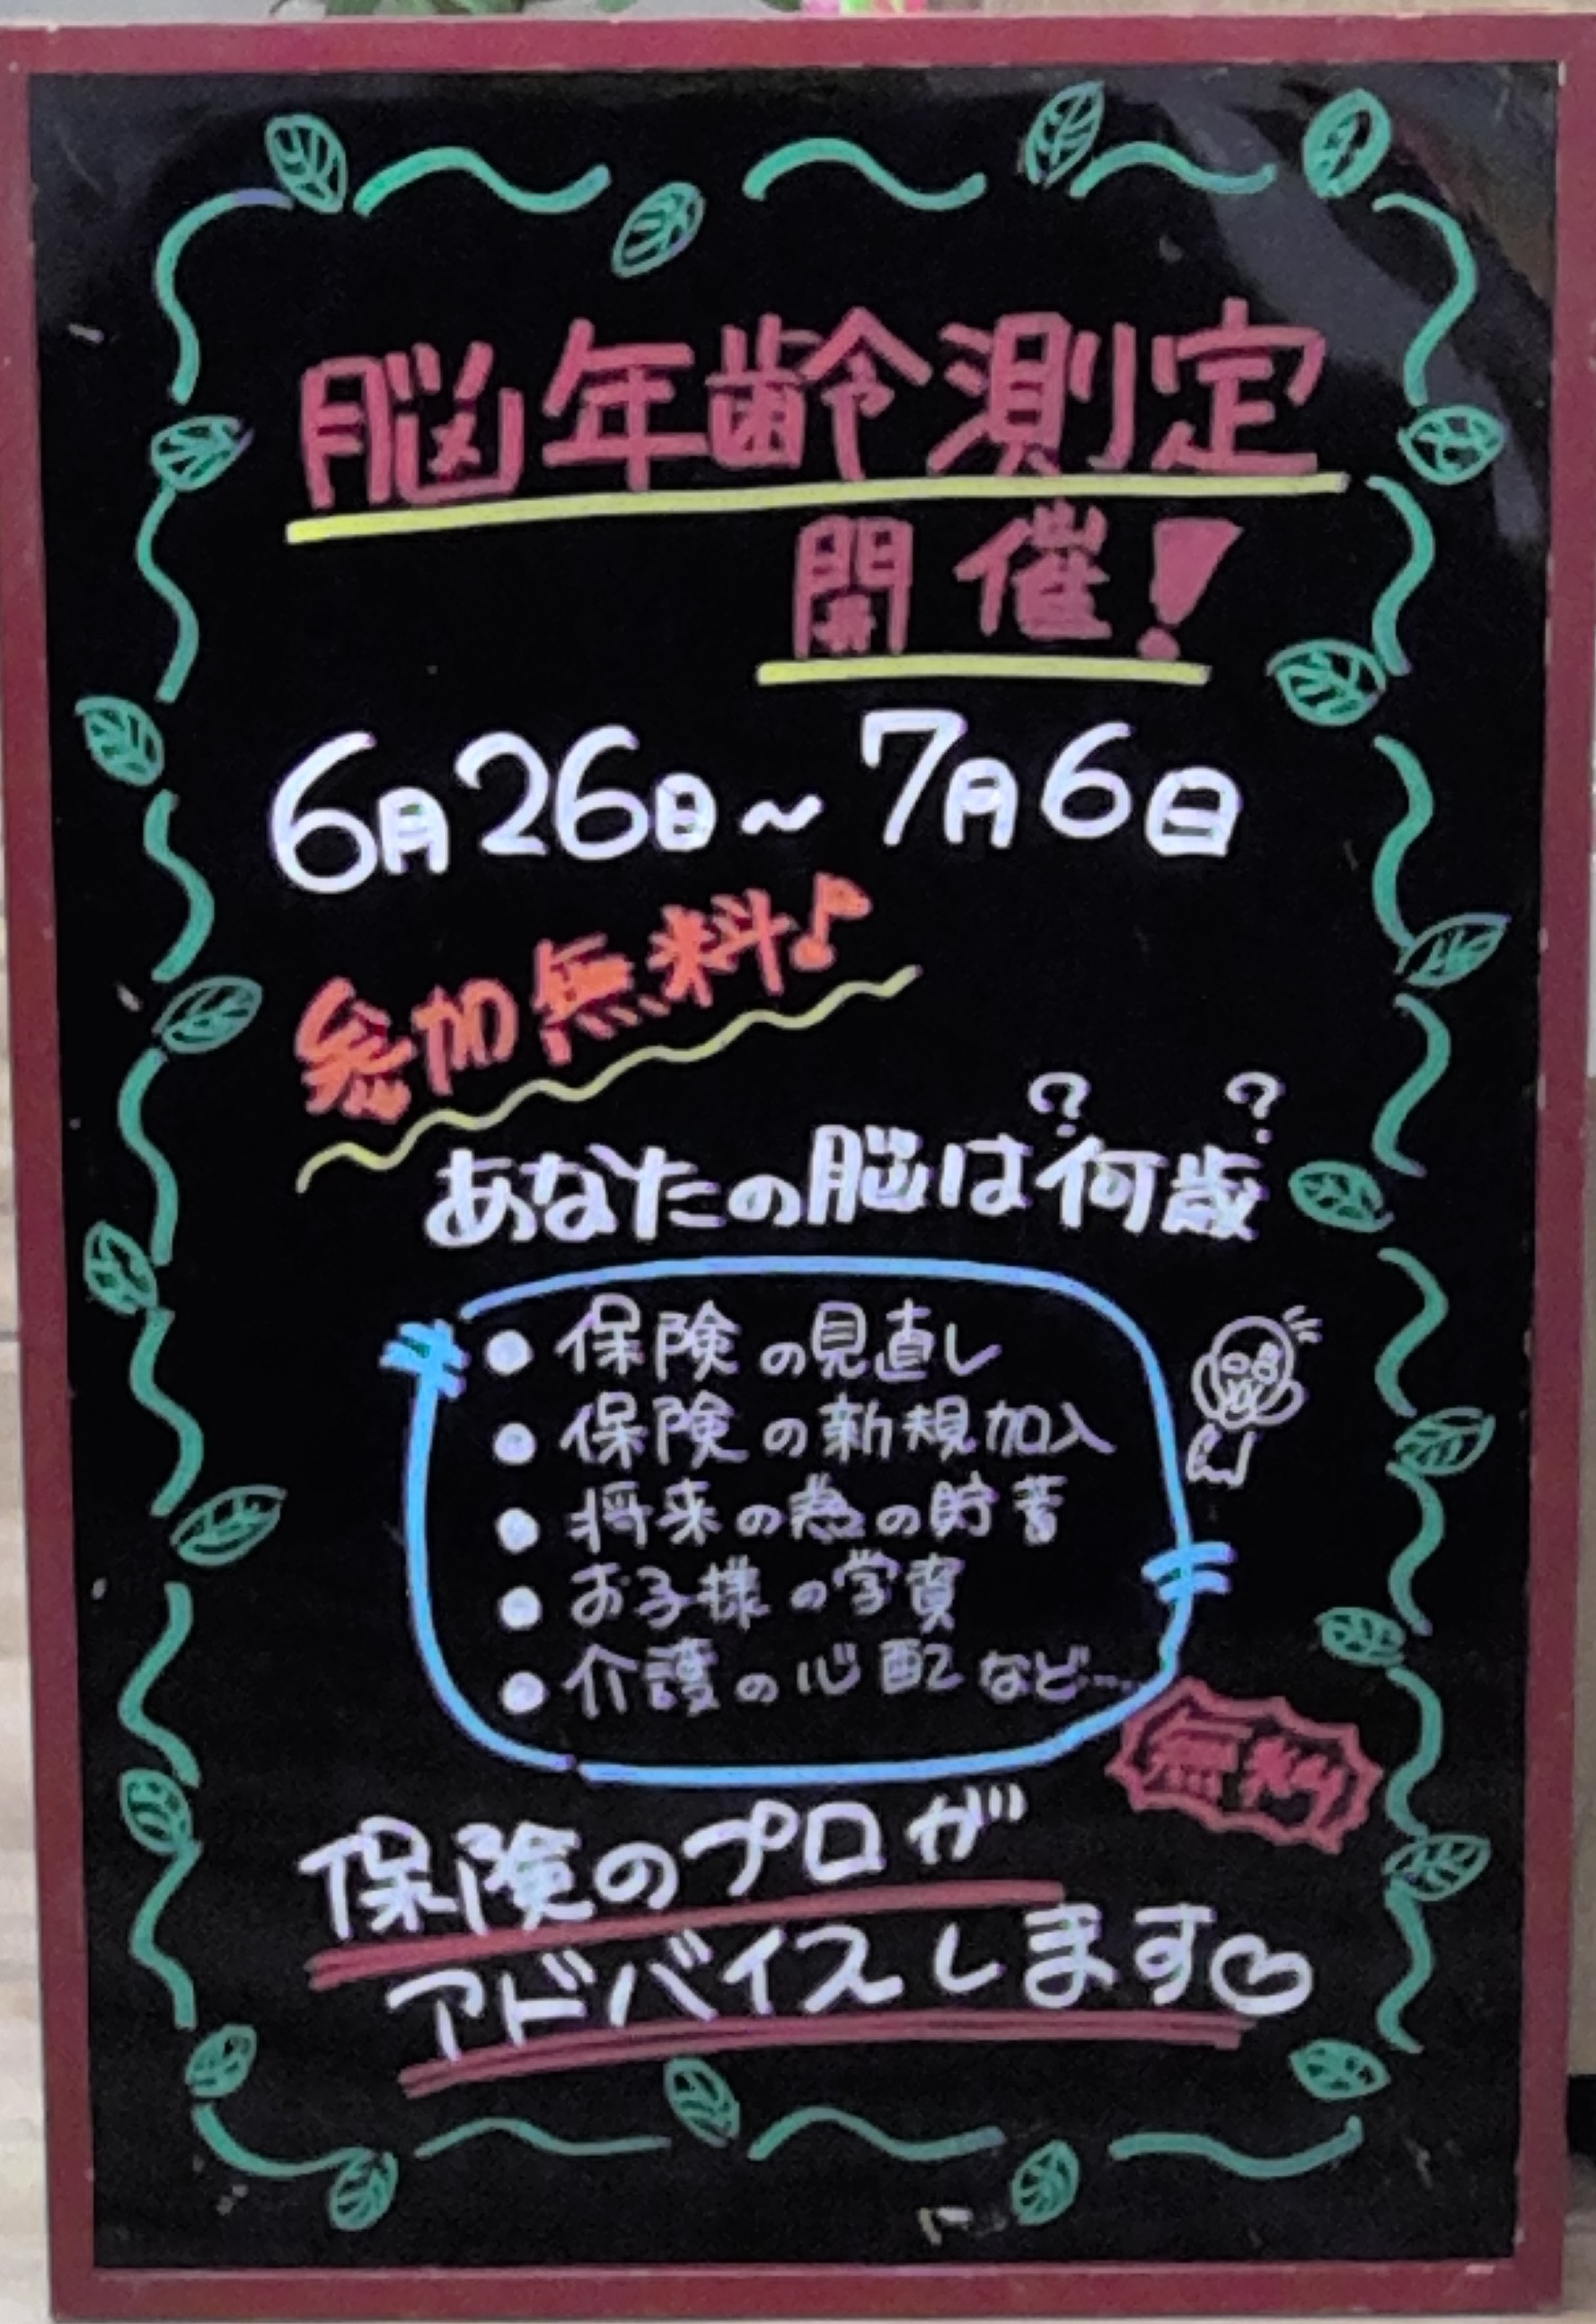 脳年齢測定
開催!
6月26日~7月6日
参加無料♪
? ?
あなたの脳は何歳
● 保険の見直し
● 保険の新規加入
● 将来の為の貯蓄
● お子様の学資
● 介護の心配など…
無料
保険のプロが
アドバイスします♡